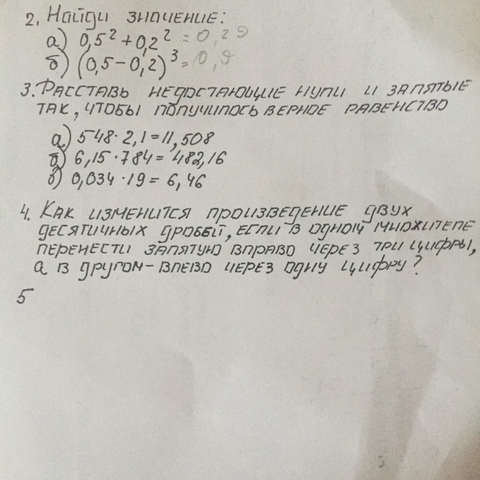 2. Найди значение:
а) 0,5² + 0,2² = 0,29
б) (0,5 - 0,2)³ = 0,9
3. Расставь недостающие нули и запятые
так, чтобы получилось верное равенство
а) 548 · 2,1 = 11,508
б) 6,15 · 784 = 482,16
б) 0,034 · 19 = 6,46
4. Как изменится произведение двух
десятичных дробей, если в одном множителе
перенести запятую вправо через три цифры,
а в другом - влево через одну цифру?
5